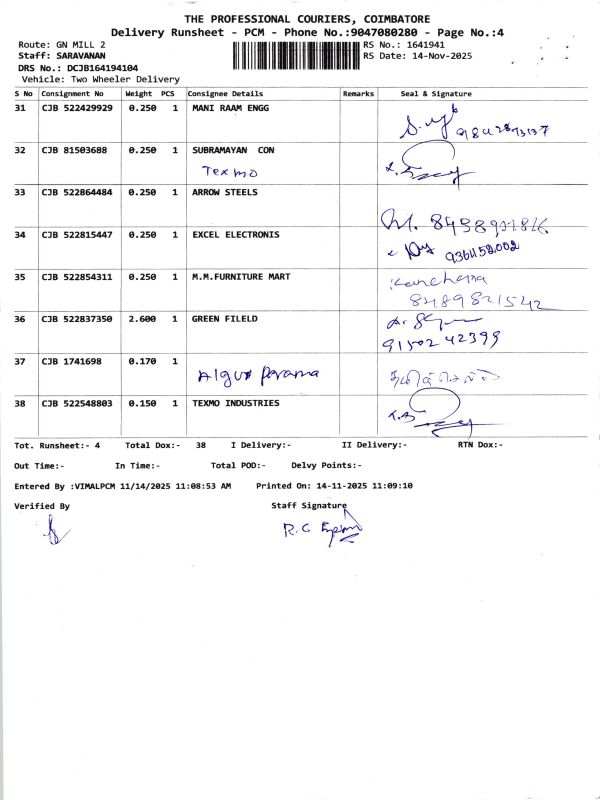 THE PROFESSIONAL COURIERS, COIMBATORE
Delivery Runsheet - PCM - Phone No.:9047080280 - Page No.:4
Route: GN MILL 2
RS No.: 1641941
Staff: SARAVANAN
RS Date: 14-Nov-2025
DRS No.: DCJB164194104
Vehicle: Two Wheeler Delivery
S No Consignment No Weight PCS Consignee Details Remarks Seal & Signature
31 CJB 522429929 0.250 1 MANI RAAM ENGG
32 CJB 81503688 0.250 1 SUBRAMAYAN CON
Texmo
33 CJB 522864484 0.250 1 ARROW STEELS
34 CJB 522815447 0.250 1 EXCEL ELECTRONIS
35 CJB 522854311 0.250 1 M.M.FURNITURE MART Kanchana
8489821542
36 CJB 522837350 2.600 1 GREEN FILELD
9150242399
37 CJB 1741698 0.170 1
38 CJB 522548803 0.150 1 TEXMO INDUSTRIES
Tot. Runsheet:- 4 Total Dox:- 38 I Delivery:- II Delivery:- RTN Dox:-
Out Time:- In Time:- Total POD:- Delvy Points:-
Entered By :VIMALPCM 11/14/2025 11:08:53 AM Printed On: 14-11-2025 11:09:10
Verified By Staff Signature